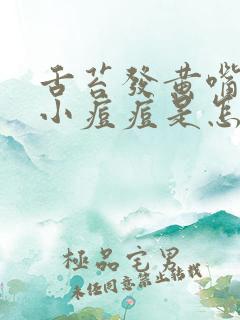 舌苔發黃嘴
小痘痘是怎
極品宅男
未經同意禁止轉載